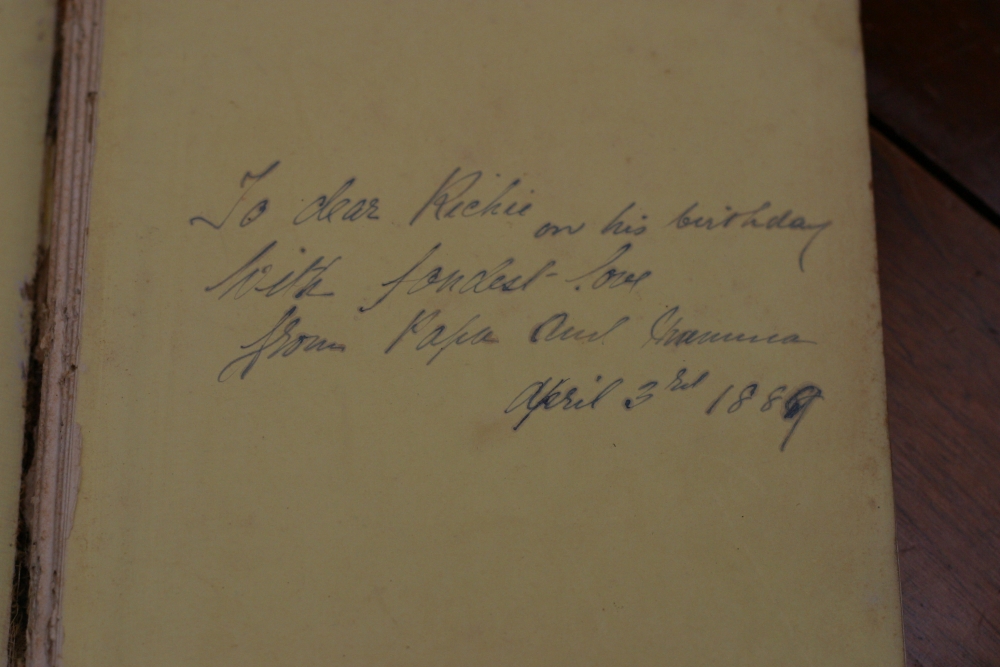 To dear Richie on his birthday
With fondest love
from Papa and Mamma
April 3rd 1889